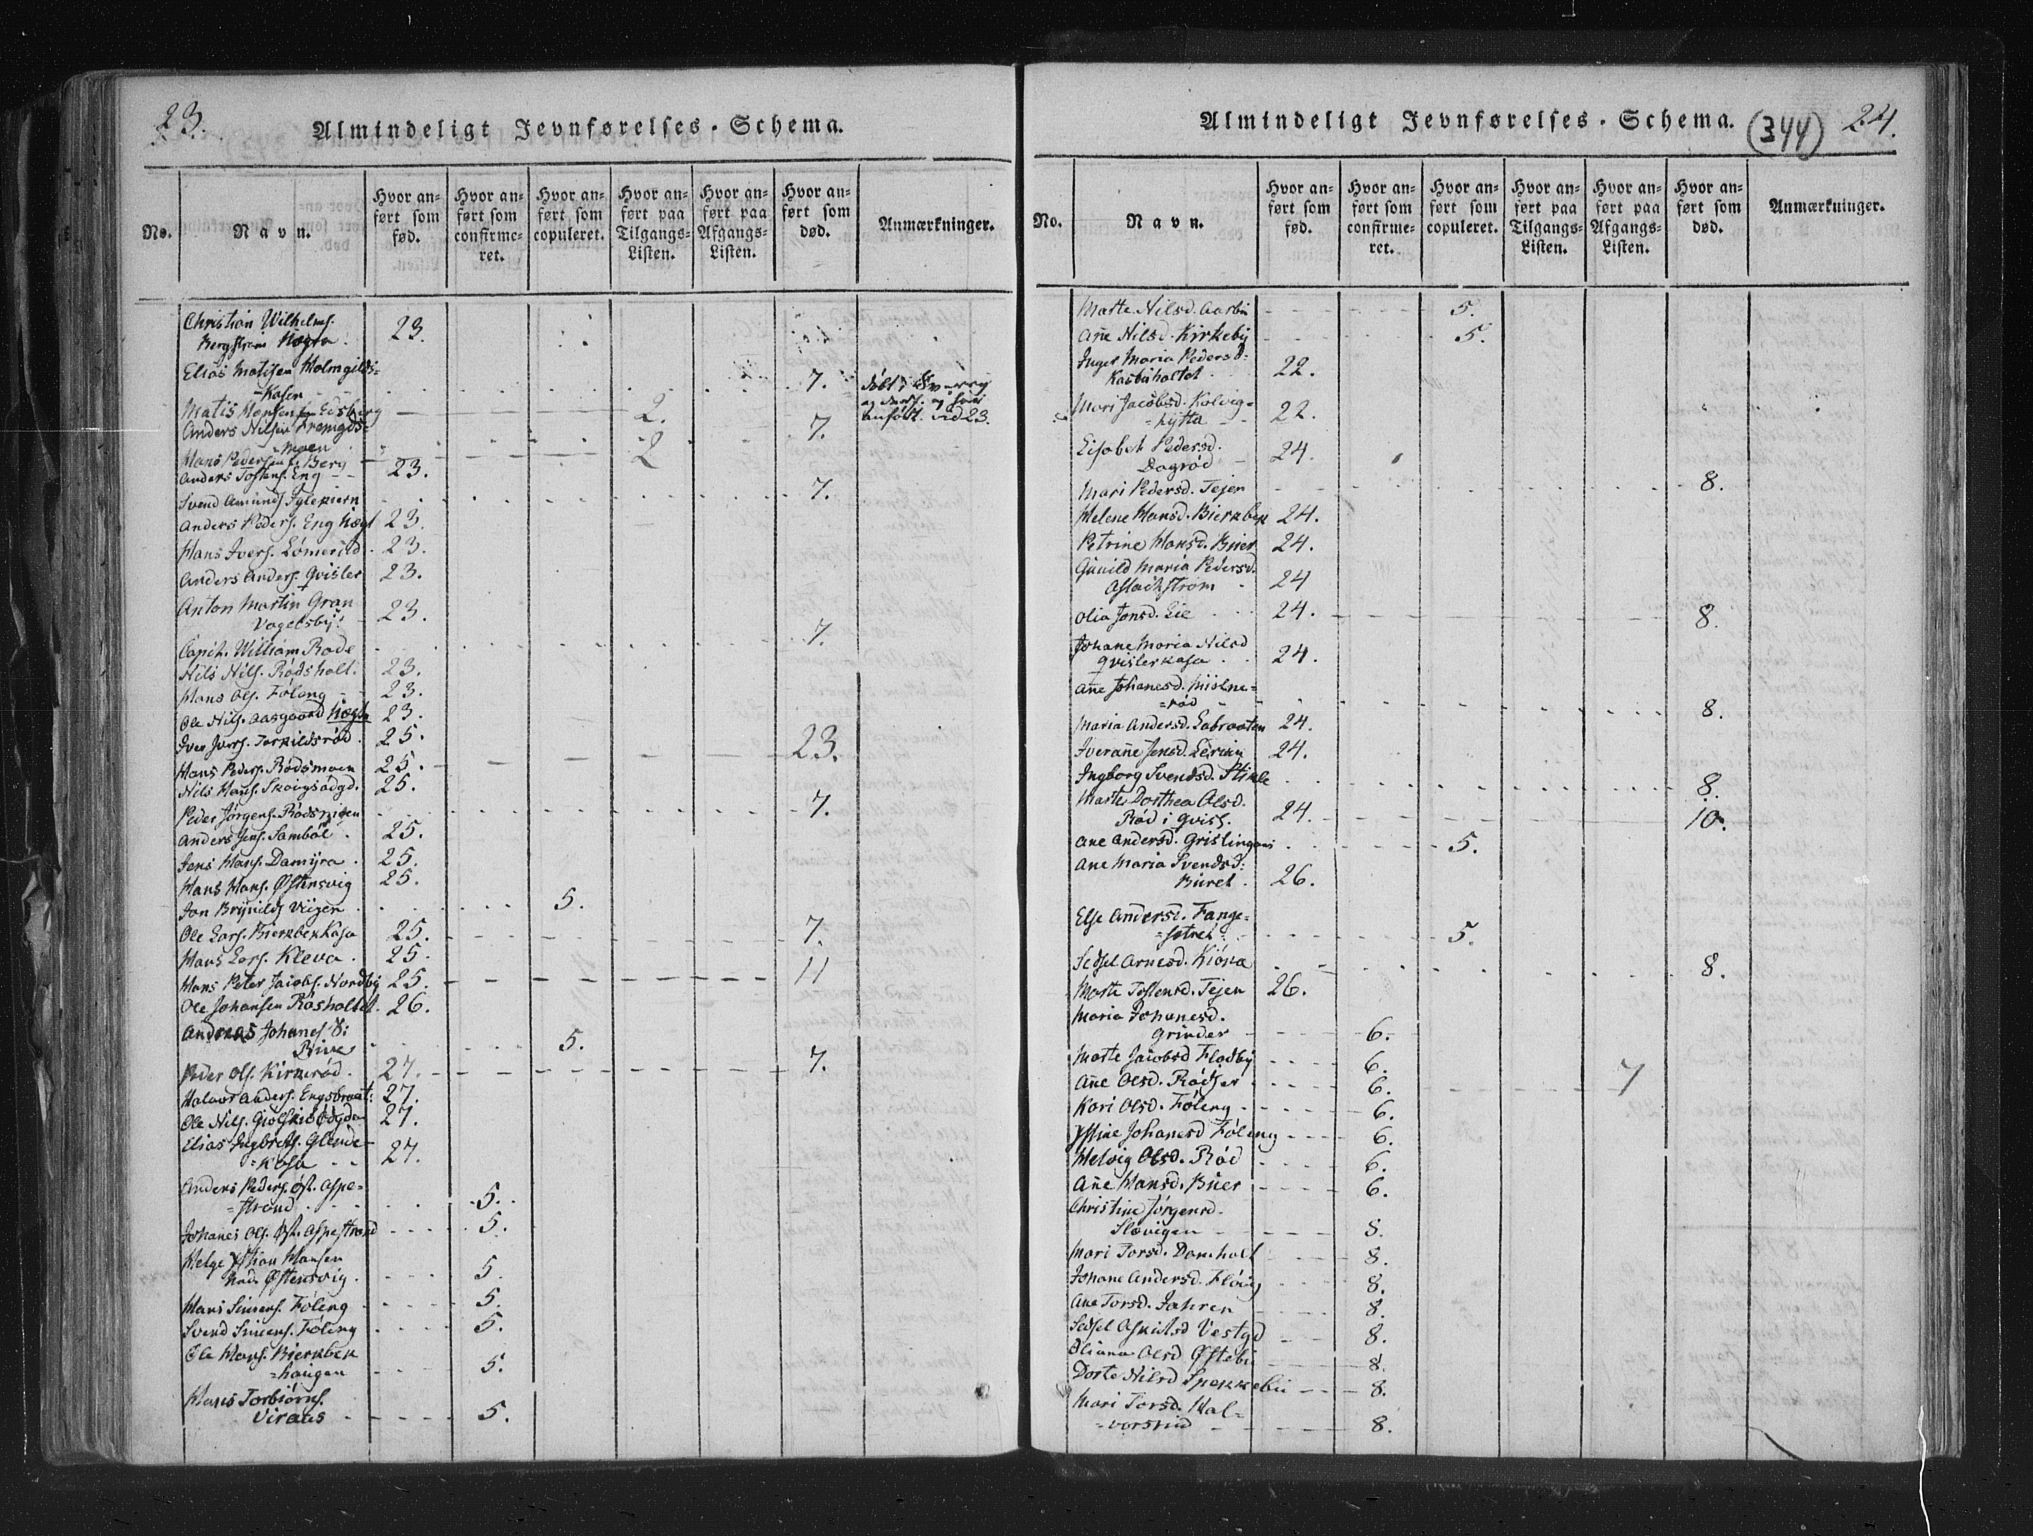 23.
Almindeligt Jevnførelses-Schema.
No.
Navn.
Hvor an-
ført som
fød.
Hvor an-
ført som
confirme-
ret.
Hvor an-
ført som
copuleret.
Hvor an-
ført paa
Tilgangs-
Listen.
Hvor an-
ført paa
Afgangs-
Listen.
Hvor an-
ført som
død.
Anmærkninger.
Christian Wilhelms.
Bergstrøm 23.
Elias Matisen Holmgilds-
=Kasen 7.
Matis Hansen Edsberg 2.
Anders Nilsen
=moen 7.
Hans Pedersen Berg 2
Anders Tostens. Eng 23.
Svend Amunds 7.
Anders Peders. Eng 23.
Hans Ivers. Lömerild 23.
Anders Anders. Qvisler 23.
Anton Martin Gran
Vogelsby 23.
Capit. William Rode 7.
Nils Nils. Rödsholt. 23.
Hans Ols. Föleng 23.
Ole Nils. Aasgaard 23.
Iver Ivers. Torkildsröd 25. 23.
Hans Peders. Rödsmoen 25.
Nils Hans. 25.
Peder Jörgens. 7.
Anders Jens. Samböl 25.
Jens Hans. Damÿra 25.
Hans Hans. Östensvig 25.
Jon Brÿnilds Viigen 5.
Ole Lars. BierkbekKasa 25. 7.
Hans Lars. Kleva 25.
Hans Peter Jacobs. Nordby 25. 11
Ole Johansen Råsholtet 26.
Andreas Johanes
5.
Peder Ols. Kirkeröd 27. 7.
Halvor Anders. Engebraat: 27.
Ole Nils. 27.
Elias Ingbrets. Glende-
=Kasa 27.
Anders Peders. Öst. Aspe-
=strand 5.
Johanes Ols. Öst. Aspestrand 5.
Helge Hansen
Östensvig 5.
Hans Simens. Föleng 5.
Svend Simens. Föleng 5.
Ole Hans. Bierkbek
=haugen 5.
Hans Torbiörns.
5.
Almindeligt Jevnførelses-Schema.
(344)
24.
No.
Navn.
Hvor an-
ført som
fød.
Hvor an-
ført som
confirme-
ret.
Hvor an-
ført som
copuleret.
Hvor an-
ført paa
Tilgangs-
Listen.
Hvor an-
ført paa
Afgangs-
Listen.
Hvor an-
ført som
død.
Anmærkninger.
Marte Nilsd. Aasbü 5.
Añe Nilsd. Kirkeby 5.
Inger Maria Pedersd:
22.
Mari Jacobsd. Kolvig-
=hÿtta 22.
Elisabet Pedersd.
Dagröd 24.
Mari Pedersd. Tejen 8.
Helene Hansd. Bierkbek 24.
Petrine Hansd. Büer 24.
Gunild Maria Pedersd.
Aslachstrøm 24
Olia Jonsd. Lie 24. 8.
Johane Maria Nilsd
Qvislerkasa 24.
Añe Johanesd.
=röd 8.
Maria Andersd. Labraaten 24.
Iverañe Jensd. 24.
Ingborg Svendsd. Stikle 8.
Marte Dorthea Olsd.
Röd i Qvisl. 24. 10.
Ane Andersd. 5.
Ane Maria Svendsd:
Büret 26.
Else Andersd. Fange-
5.
Sidsel Arnesd. 8.
Marte Tostensd. Tejen 26.
Maria Johanesd.
Grinder 6.
Marte Jacobsd Flodby 6.
Añe Olsd. 6. 7
Kari Olsd. Föleng 6.
Johanesd Föleng 6.
Helvig Olsd. Röd 6.
Añe Hansd. Büer 6.
Christine Jørgensd.
Slævigen 8.
Mari Torsd. Damholt 8.
Johane Andersd. 8.
Ane Torsd. Jahren 8.
Sidsel Askildsd Vestgd 8.
Oliana Olsd Östebü 8.
Dorte Nilsd Spekkebü 8.
Mari Torsd. Hal-
=vorsrud 8.